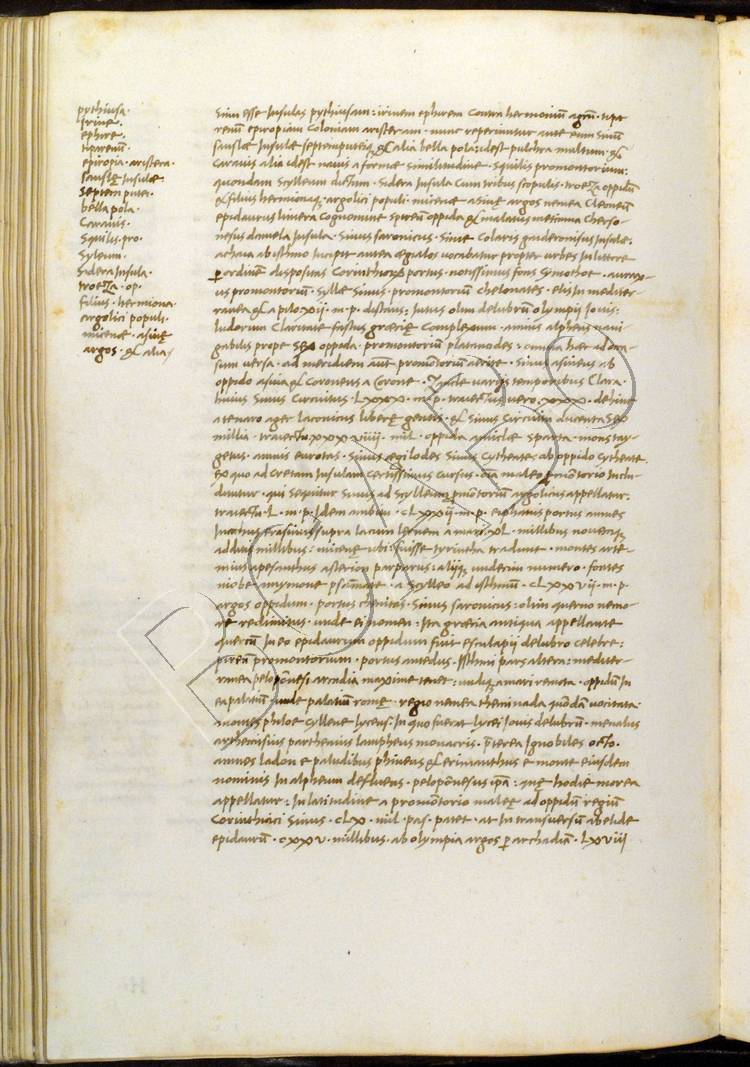 pythiusa·
Irine·
ephire·
tiparenū·
epiropia· aristera·
fauslę Insulae·
septem putei·
bella pola·
Caravis·
Squilis· pro·
Syleum·
Sidera Insula·
troezza· op·
filius· hermiona·
argolici populi·
micenae· asinę
argos· & alia
Sinū esse Insulas pythiusam: irinem ephirem Contra hermioniū agrū· tipa
renū epiropiam Coloniam aristeram· nunc reperiuntur ante eum Sinū
fauslae Insulae septemputeiq & alia bella pola: idest pulchra multum· &
Caravis alia idest navis a formae Similitudine· Squilis promontorium:
quondam Scylleum dictum· Sidera Insula Cum tribus scopulis· troezza oppidū
& filius hermionaq argolici populi· micenae asinae argos nemea Cleoneū
epidaurus limera Cognomine spirea oppida & malatus metinna cherso
nesus damela Insula· Sinus saronicus· Sine Colaris gaideronisus Insulae:
achaia ab isthmo Incipit antea aegialos vocabatur propter urbes In littore
p ordinē dispositas Corinthiorū portus· notissimus fons Cymothoe· aurax
us promontoriū· Syllae Sinus· promontoriū chelonates· elis In mediter
ranea & a pilo XII· m· p· distans: Intus olim delubrū olympii Iovis:
ludorum Claritate fastus graecię Complexum· amnis alpheus navi
gabilis prope Sex oppada· promontorium platamodes· omnia haec ad occa
sum versa· ad meridiem aūt promōtoriū acrite· Sinus asineus ab
oppido asina & Coroneus a Corone· Itaque variis temporibus Clara·
huius Sinus Circuitus· LXXX· m· p· traiectus vero· XXX· dehinc
a tenaro ager laconicus liberę gentis· & Sinus Circuitu ducenta Sex
millia· traiectu XXXVIIII· mil· oppida amiclae sparta· mons tay
getus· amnis eurotas· Sinus aegilodes Sinus Cytheate· ab oppido cytheate·
ex quo ad Cretam Insulam Certissimus Cursus· oīa maleo p̄montorio Inclu
duntur· qui Sequitur Sinus ad Scylleum p̄mōtoriū argolicus appellatur:
traiectu· L· m· p· Idem ambitu· CLXXII· m· p· erphanus portus amnes
Inachus erasinus supra lacum lernem a mari XL· millibus novenisq
adduis millibus: micenę ubi fuisse tyrintha tradunt· montes arte
mius apesanthus asterion parparus: aliiq undecim numero· fontes
niobe· amymone psāmate· a Scylleo ad isthmū· CLXXVII· m· p·
argos oppidum· portus chenitas· Sinus saronicus: olim querno nemo
re redimitus· unde ei nomen· Ita graecia antiqua appellante
quercū In eo epidaurum oppidum fuit esculapii delubro celebre:
pireū promontorium· portus antedus· Isthmi pars altera: mediter
ranea pelopōnesi arcadia maxime tenet: undiq a mari remota· oppidū In
ea palatiū unde palatiū romę· regio nemea theminada quōdā vocitata·
montes pholoe cyllene lyceus: In quo fuerat lycei Iovis delubrū· menalus
arthemisius parthenius lampheus monacris· p̄terea Ignobiles octo·
amnes ladon e paludibus phineus & erimanthus e monte eiusdem
nominis In alpheum defluens· pelopōnesus ip̄a: quę hodie morea
appellatur: In latitudine a promōtorio maleę ad oppidū regiū
Corinthiaci Sinus· CLX· mil· pas· patet· at In transversū ab elide
epidaurū· CXXV· millibus· ab olympia argos p archadiā· LXVIII